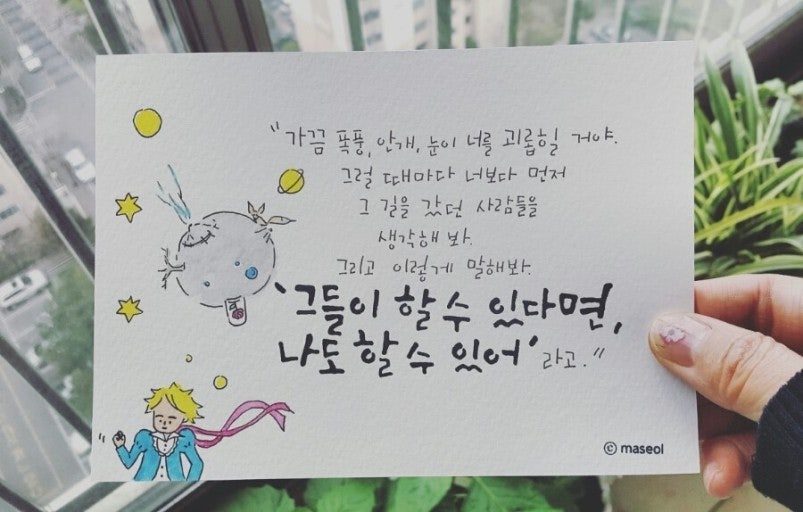 "가끔 폭풍, 안개, 눈이 너를 괴롭힐 거야.
그럴 때마다 너보다 먼저
그 길을 갔던 사람들을
생각해 봐.
그리고 이렇게 말해봐.
'그들이 할 수 있다면,
나도 할 수 있어' 라고."
ⓒ maseol